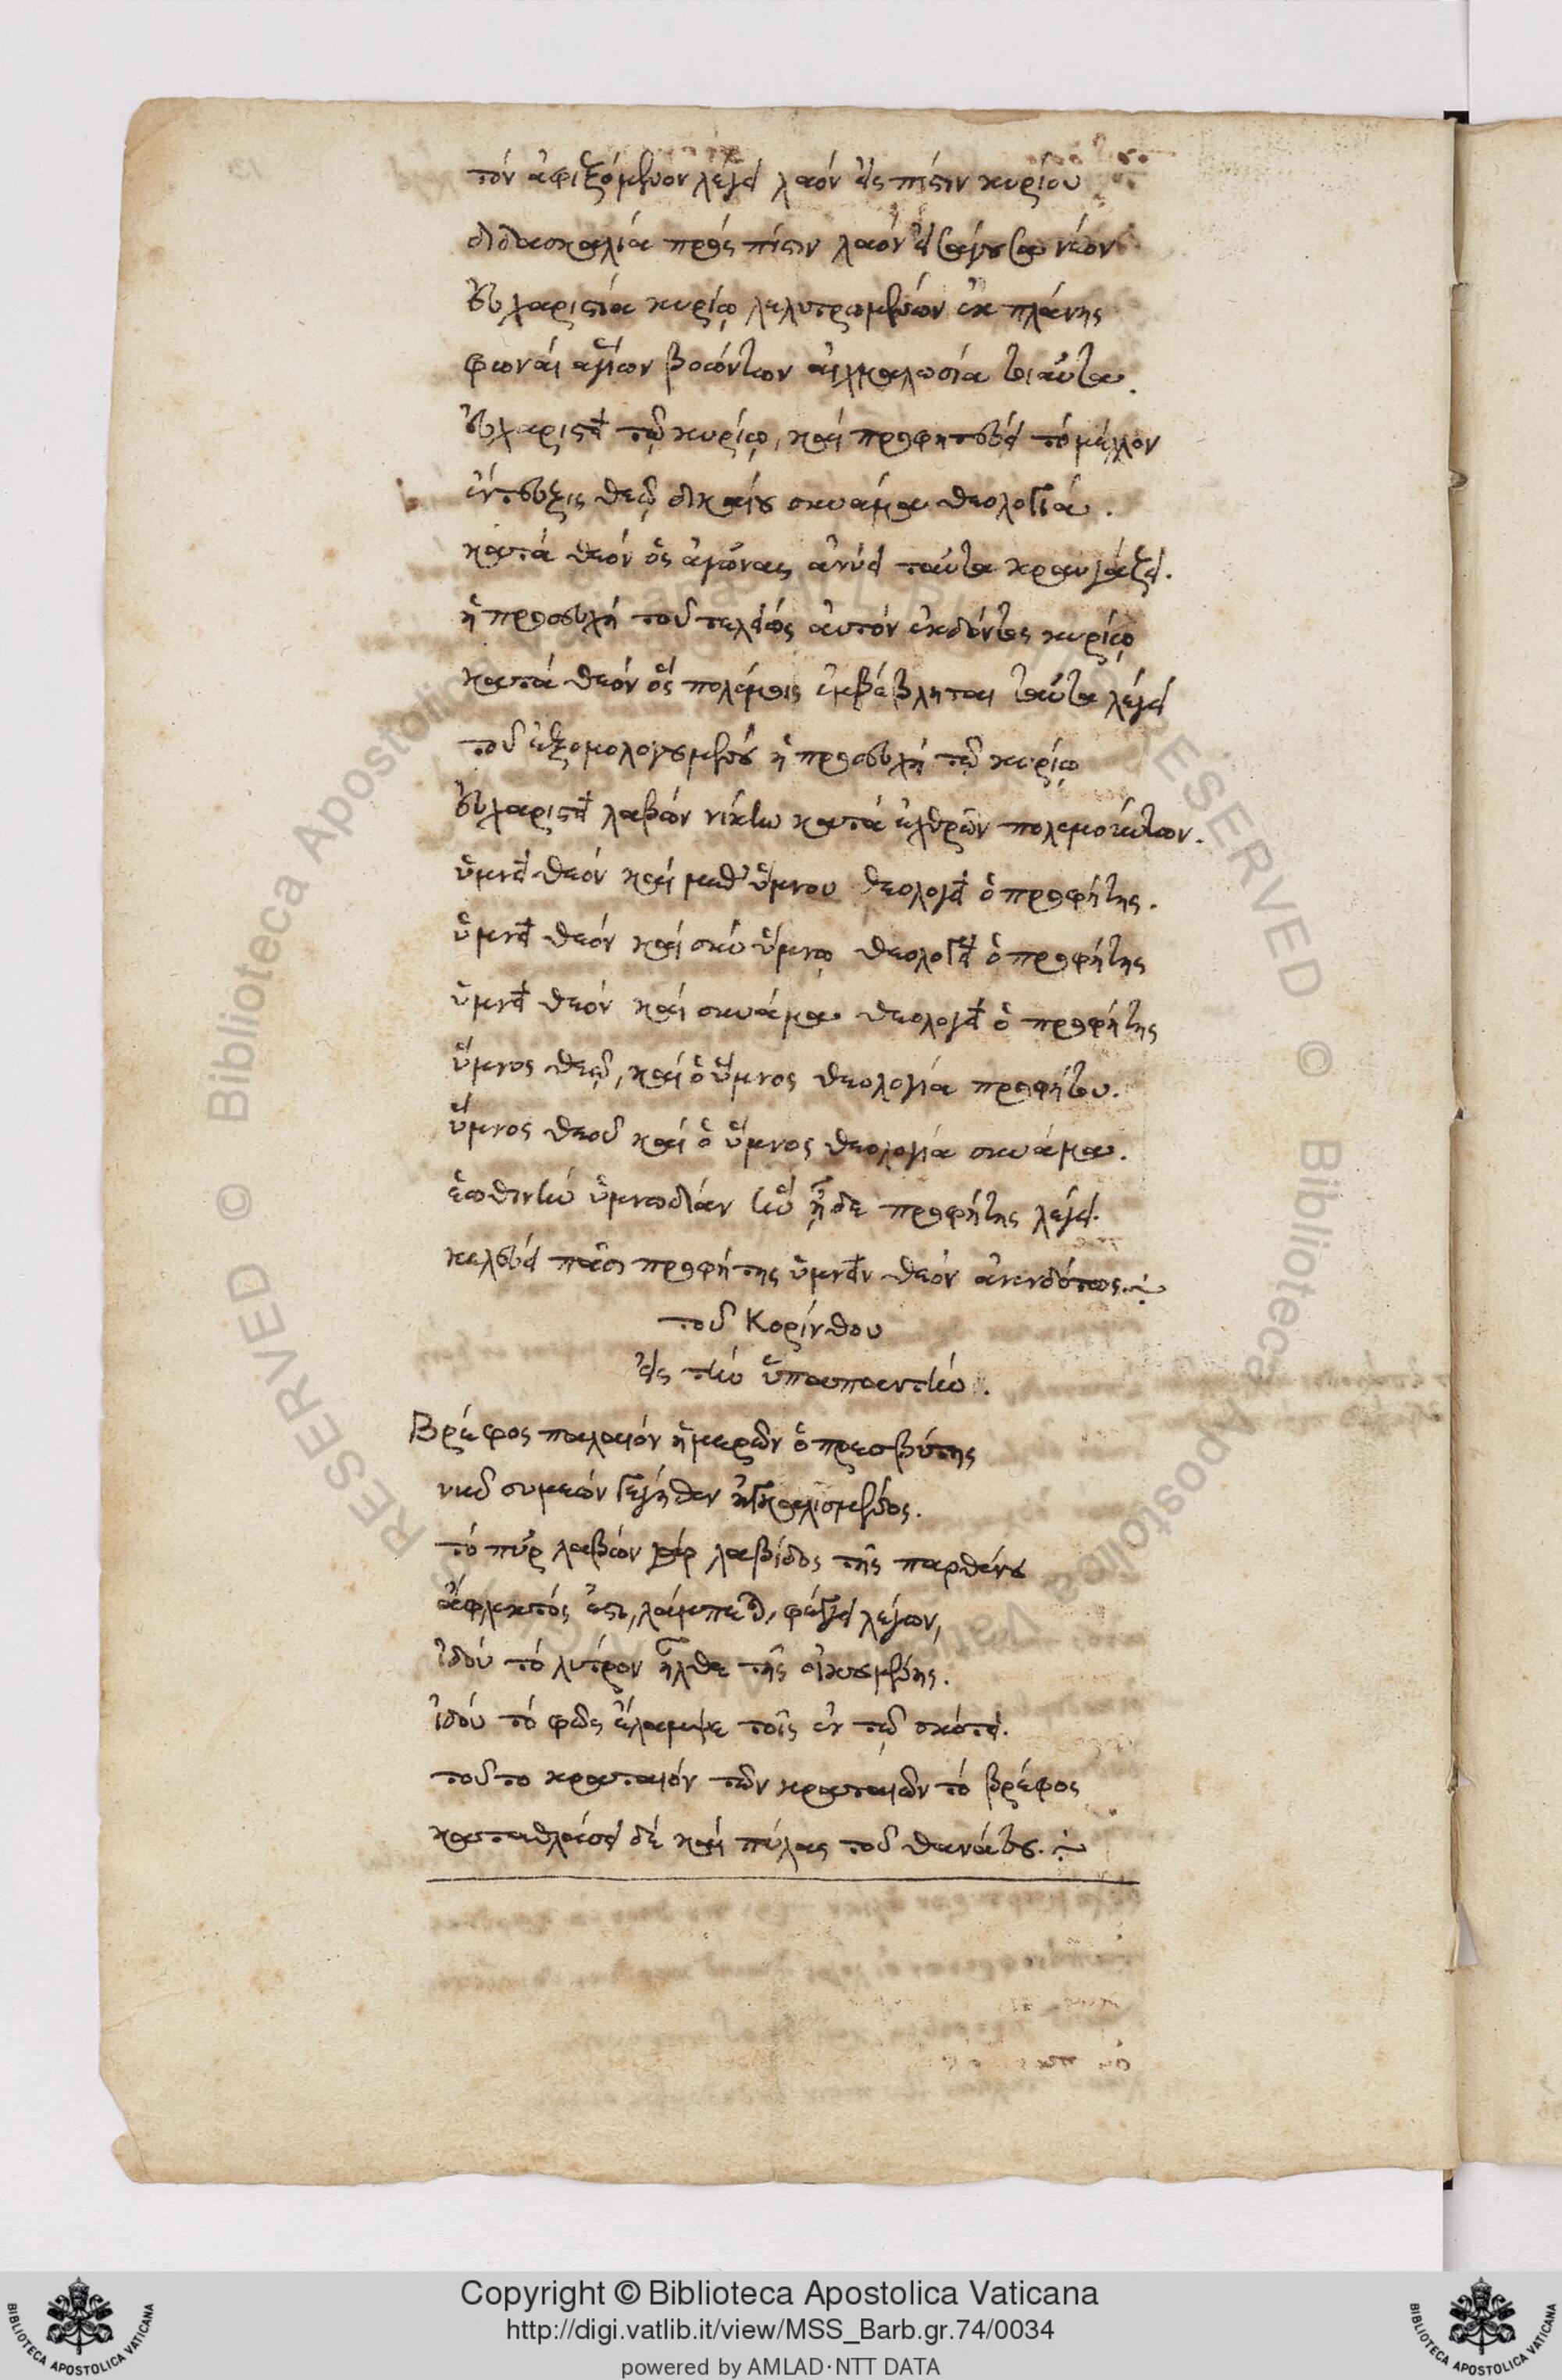 τὸν ἀφιξόμενον λέγει λαὸν εἰς πίστιν κυρίου
διδασκαλία πρὸς πίστιν λαὸν εἰσάγουσα νέον
εὐχαριστία κυρίῳ λελυτρωμένων ἐκ πλάνης
φωναὶ ἁγίων βοώντων αἰχμαλωσία τιαῦτα.
εὐχαριστεῖ τῷ κυρίῳ, καὶ προφητεύει τὸ μέλλον
ἔντευξις θεῷ δικαίου σὺν ἅμα θεολογία.
κατὰ θεὸν ὃς ἀγῶνας ἀνύει ταῦτα κραυγάζει.
ἡ προσευχὴ τοῦ τελείως αὐτὸν ἐκδόντος κυρίῳ
κατὰ θεὸν ὃς πολέμοις ἐμβέβληται ταῦτα λέγει
τοῦ ἐξομολογουμένου ἡ προσευχὴ τῷ κυρίῳ
εὐχαριστεῖ λαβὼν νίκην κατὰ ἐχθρῶν πολεμούντων.
ὑμνεῖ θεὸν καὶ μεθ' ὕμνου θεολογεῖ ὁ προφήτης.
ὑμνεῖ θεὸν καὶ σὺν ὕμνῳ θεολογεῖ ὁ προφήτης
ὑμνεῖ θεὸν καὶ σὺν ἅμα θεολογεῖ ὁ προφήτης
ὕμνος θεῷ, καὶ ὁ ὕμνος θεολογία προφήτου.
ὕμνος θεοῦ καὶ ὁ ὕμνος θεολογία σὺν ἅμα.
ἑωθινὴν ὑμνωδίαν τὴν ᾗδε προφήτης λέγει.
κελεύει πᾶσι προφήτης ὑμνεῖν θεὸν ἀνενδότως.
τοῦ Κορίνθου
εἰς τὴν ὑπαπαντήν.
Βρέφος παλαιὸν ἡμερῶν ὁ πρεσβύτης
νῦν συμεὼν γέγηθεν ἠγκαλισμένος.
τὸ πῦρ λαβὼν γὰρ λαβίδος τῆς παρθένου
ἄφλεκτός ἐστι, λάμπεται, φέγγει λέγων,
ἰδοὺ τὸ λύτρον ἦλθε τῆς οἰκουμένης.
ἰδοὺ τὸ φῶς ἔλαμψε τοῖς ἐν τῷ σκότει.
τοῦτο κραταιὸν τῶν κραταιῶν τὸ βρέφος
καταθλάσει δὲ καὶ πύλας τοῦ θανάτου.
© Biblioteca Apostolica Vaticana ALL RIGHTS RESERVED
Copyright © Biblioteca Apostolica Vaticana
http://digi.vatlib.it/view/MSS_Barb.gr.74/0034
powered by AMLAD·NTT DATA
BIBLIOTECA APOSTOLICA VATICANA
BIBLIOTECA APOSTOLICA VATICANA